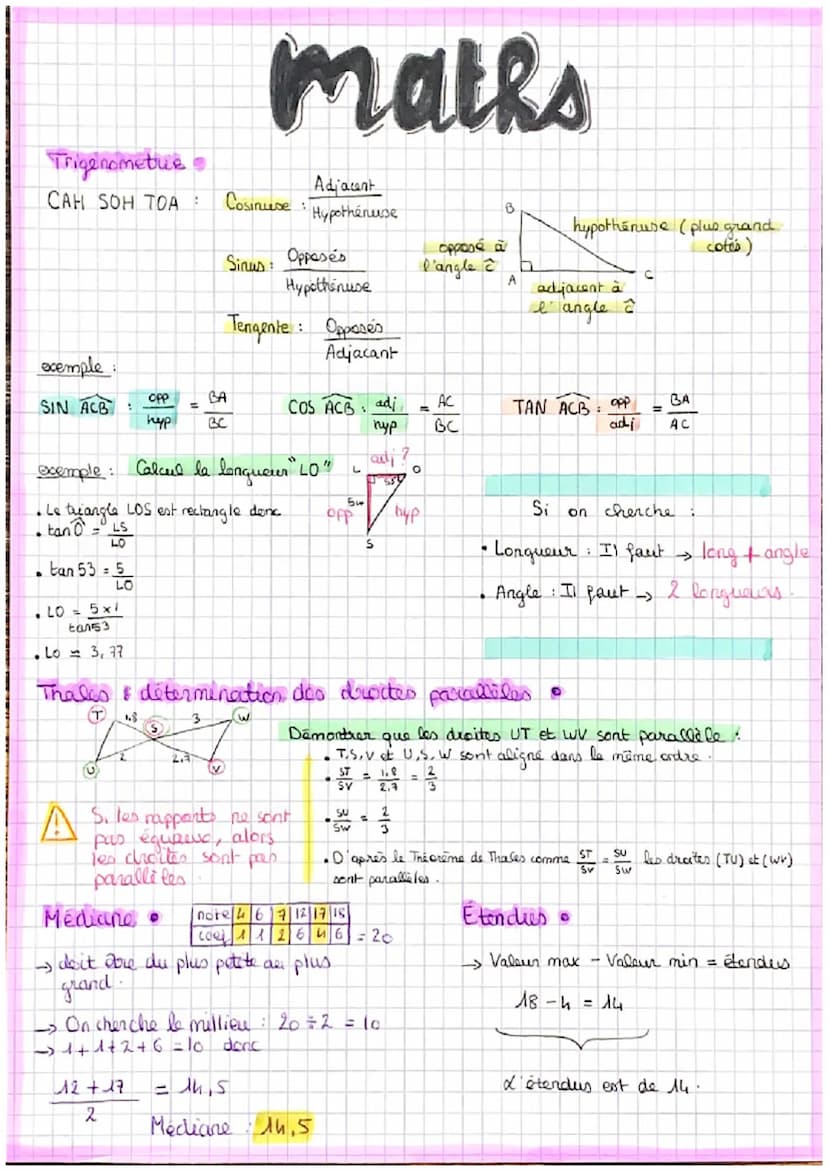 maths
Trigénométrie
CAH SOH TOA :
Cosinuse : Adjacent
Hypothénuse
Sinus : Opposés
Hypothénuse
Tengente : Opposés
Adjacant
B
A
C
hypothénuse (plus grand
cotés)
opposé à
l'angle ĉ
adjacent à
l'angle ĉ
exemple :
SIN ACB : opp/hyp = BA/BC
COS ACB : adj/hyp = AC/BC
TAN ACB : opp/adj = BA/AC
exemple : Calcul la longueur "LO"
L adj ? O
53°
opp
hyp
S
. Le triangle LOS est rectangle donc
. tan Ô = LS/LO
. tan 53 = 5/LO
. LO = 5 x 1/tan 53
. Lo ≈ 3,77
Si on cherche :
. Longueur : Il faut → long + angle
. Angle : Il faut → 2 longueurs.
Thales & détermination des droites parallèles
T 1,8 S 3 W
U 2 2,7 V
Démontrer que les droites UT et WV sont parallèle :
. T,S,V et U,S,W sont aligné dans le même ordre.
. ST/SV = 1,8/2,7 = 2/3
. SU/SW = 2/3
. D'après le Théorème de Thales comme ST/SV = SU/SW les droites (TU) et (WV)
sont parallèles.
! Si les rapports ne sont
pas équaux, alors
les droites sont pas
parallèles.
Médiane
note 4 6 7 12 17 18
coef 1 1 2 6 4 6 = 20
→ doit être du plus petite au plus
grand.
→ On cherche le millieu : 20 ÷ 2 = 10
→ 1+1+2+6 = 10 donc
12 + 17 / 2 = 14,5
Médiane : 14,5
Etendus
→ Valeur max - Valeur min = étendus
18 - 4 = 14
L'étendus est de 14.